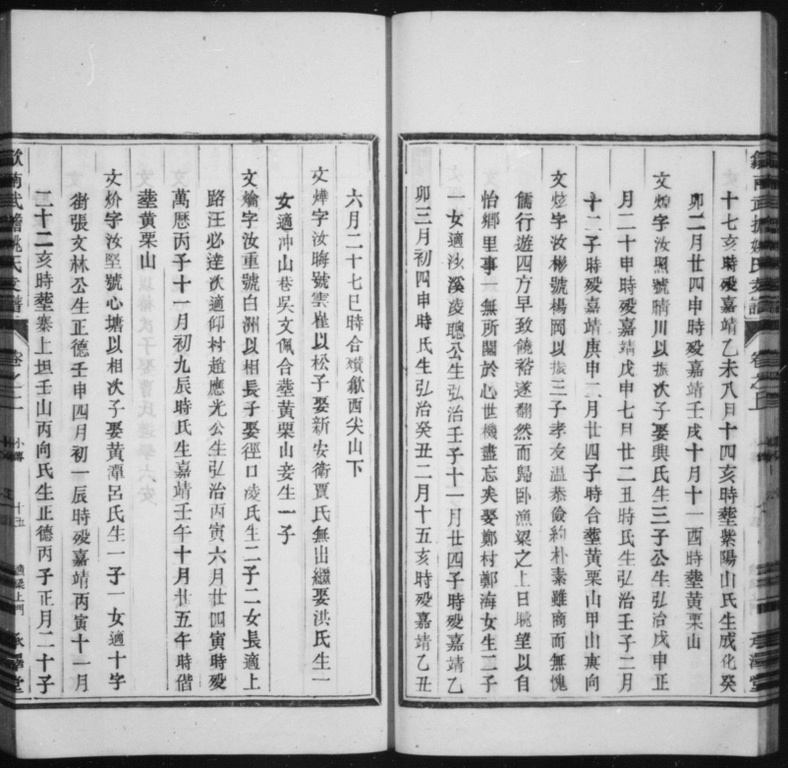 十七亥時歿嘉靖乙未八月十四亥時塟紫陽山氏生成化癸
卯二月廿四申時歿嘉靖壬戌十月十一酉時塟黄栗山
文煌字汝照號晴川以振次子娶與氏生三子公生弘治戊申正
月二十申時歿嘉靖戊申七日廿二丑時氏生弘治壬子二月
十二子時歿嘉靖庚申二月廿四子時合塟黄栗山甲山寅向
文炫字汝彬號楊岡以振三子孝友温恭儉約朴素雖商而無愧
儒行遊四方早致饒裕遂翻然而歸卧漁梁之上日眺望以自
怡鄉里事一無所關於心世機盡忘矣娶鄭村鄭海女生二子
一女適沙溪凌聰公生弘治壬子十一月廿四子時歿嘉靖乙
卯三月初四申時氏生弘治癸丑二月十五亥時歿嘉靖乙丑
六月二十七巳時合殯歙西尖山下
文燁字汝晦號雲崖以松子娶新安衛賈氏無出繼娶洪氏生一
女適冲山巷吳文佩合塟黄栗山妾生一子
文爚字汝重號白洲以相長子娶徑口凌氏生二子二女長適上
路汪必達次適仰村趙應光公生弘治丙寅六月廿四寅時歿
萬歷丙子十一月初九辰時氏生嘉靖壬午十月廿五午時偕
塟黄栗山
文炌字汝堅號心塘以相次子娶黄潭呂氏生一子一女適十字
街張文林公生正德壬申四月初一辰時歿嘉靖丙寅十一月
二十二亥時塟寨上坦壬山丙向氏生正德丙子正月二十子
歙南武擔姚氏支譜
卷之二
小傳
十五
漁梁上門
承澤堂